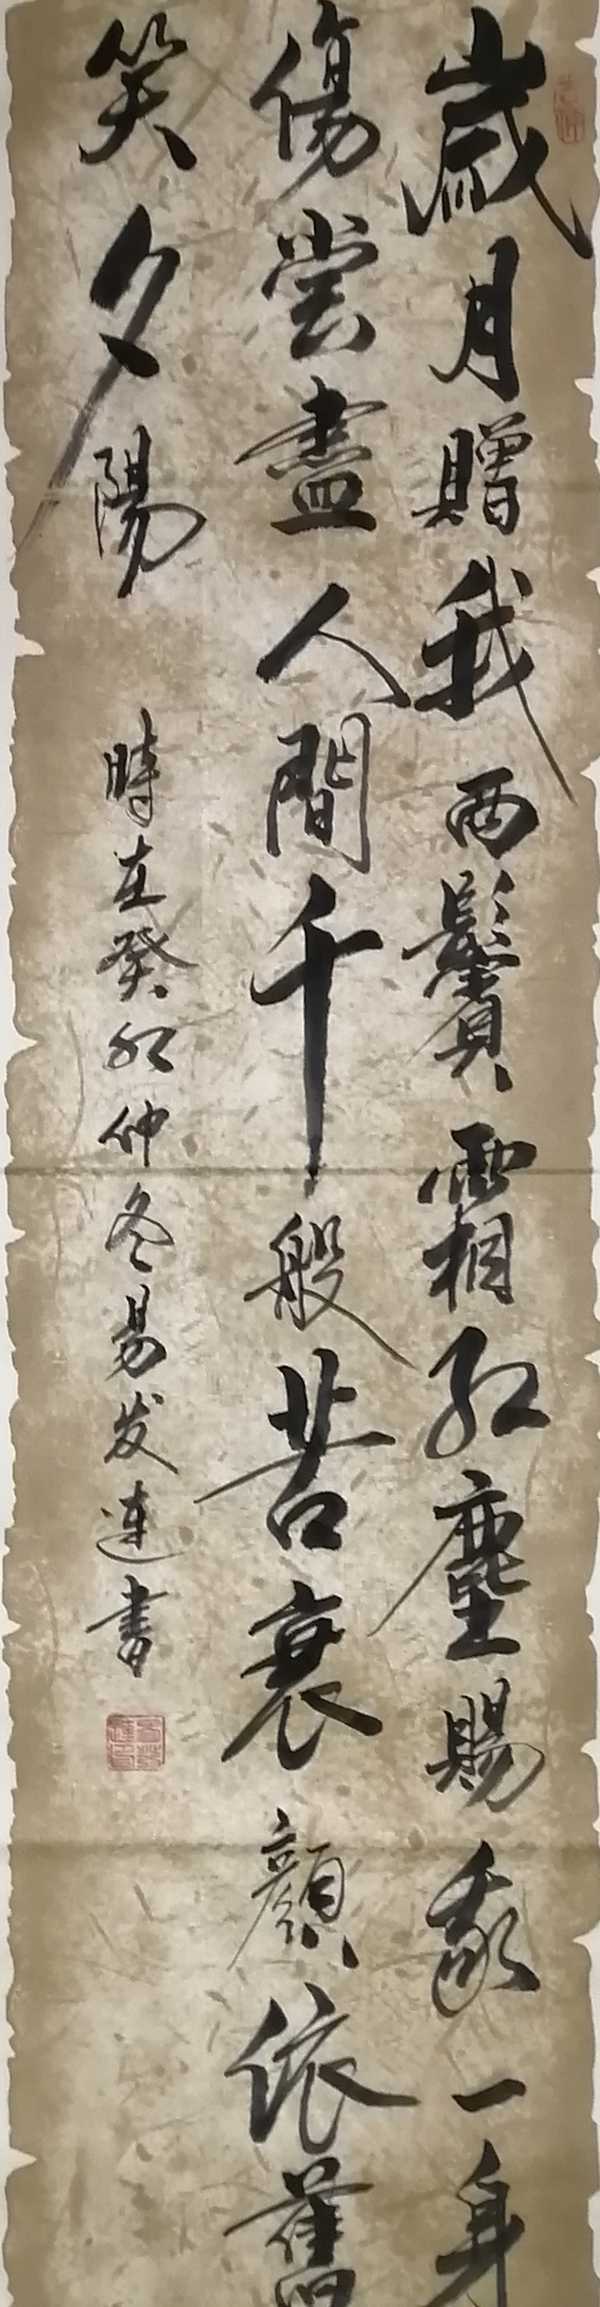 歲月贈我两鬢霜红塵賜我一身
傷嘗盡人間千般苦衰顔依舊
笑夕陽
時在癸卯仲冬易发连書